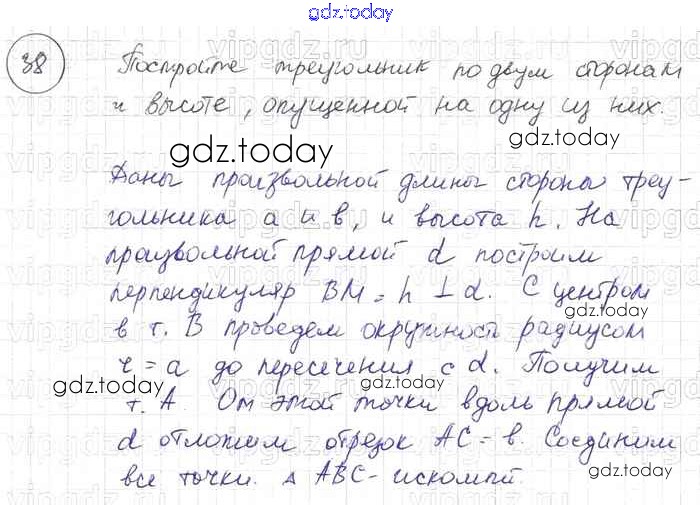 gdz.today
38 Постройте треугольник по двум сторонам
и высоте, опущенной на одну из них.
gdz.today
gdz.today
Даны произвольной длины стороны треу-
гольника a и b, и высота h. На
произвольной прямой d построим
перпендикуляр BM = h ⊥ d. С центром
в т. B проведем окружность радиусом
r = a до пересечения с d. Получим
gdz.today
gdz.today
т. A От этой точки вдоль прямой
d отложим отрезок AC = b. Соединим
все точки. △ ABC - искомый.
gdz.today